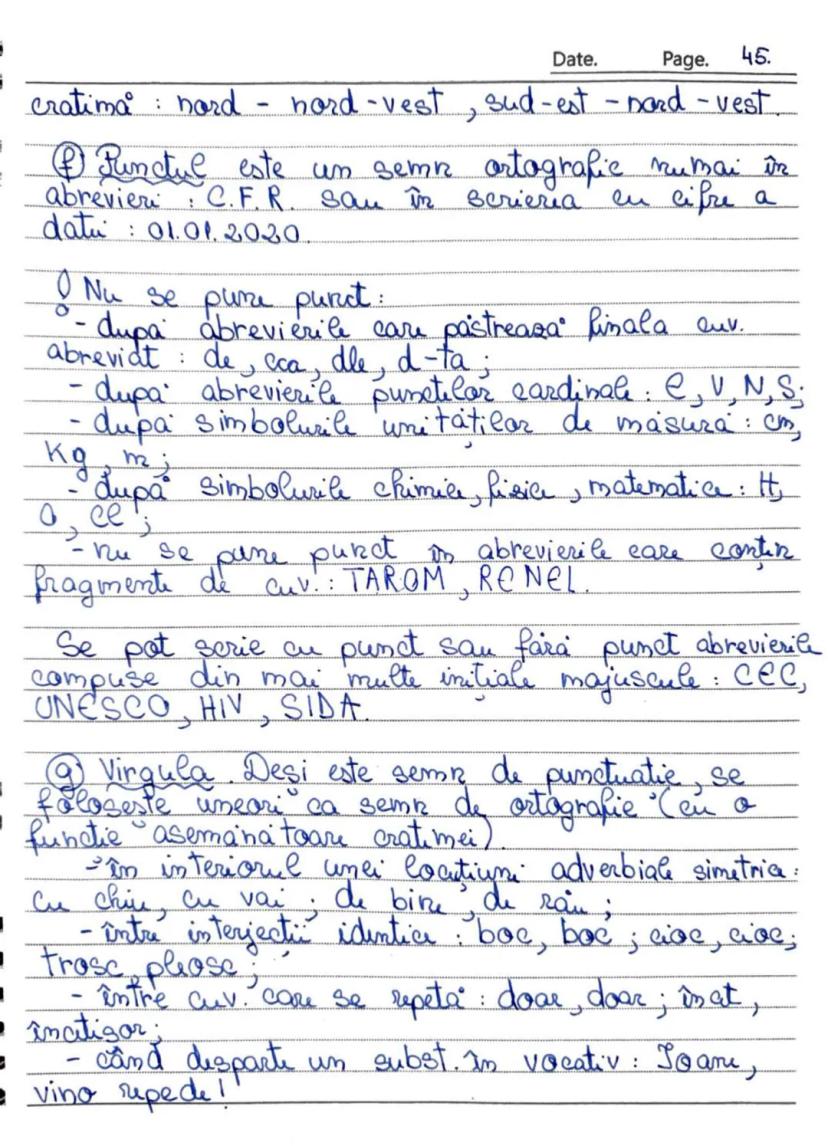 Date. Page. 45.
cratimă : nord - nord-vest , sud-est - nord - vest
f) Punctul este un semn ortografic numai în
abrevieri : C.F.R. sau în scrierea cu cifre a
datei : 01.01.2020.
! Nu se pune punct :
- după abrevierile care păstrează finala cuv.
abreviat : dc, cca, dle, d-ta ;
- după abrevierile punctelor cardinale : E, V, N, S;
- după simbolurile unităților de măsură : cm,
Kg, m ;
- după simbolurile chimice, fizice, matematice : H,
O, Cl ;
- nu se pune punct în abrevierile care conțin
fragmente de cuv. : TAROM, RENEL.
Se pot scrie cu punct sau fără punct abrevierile
compuse din mai multe inițiale majuscule : CEC,
UNESCO, HIV, SIDA.
g) Virgula. Deși este semn de punctuație, se
folosește uneori ca semn de ortografie (cu o
funcție asemănătoare cratimei)
- în interiorul unei locațiuni adverbiale simetrice :
cu chiu, cu vai ; de bine, de rău ;
- între interjecții identice : boc, boc ; cioc, cioc ;
trosc, pleosc ;
- între cuv. care se repetă : doar, doar ; încet,
încetișor ;
- când desparte un subst. în vocativ : Ioane,
vino repede !